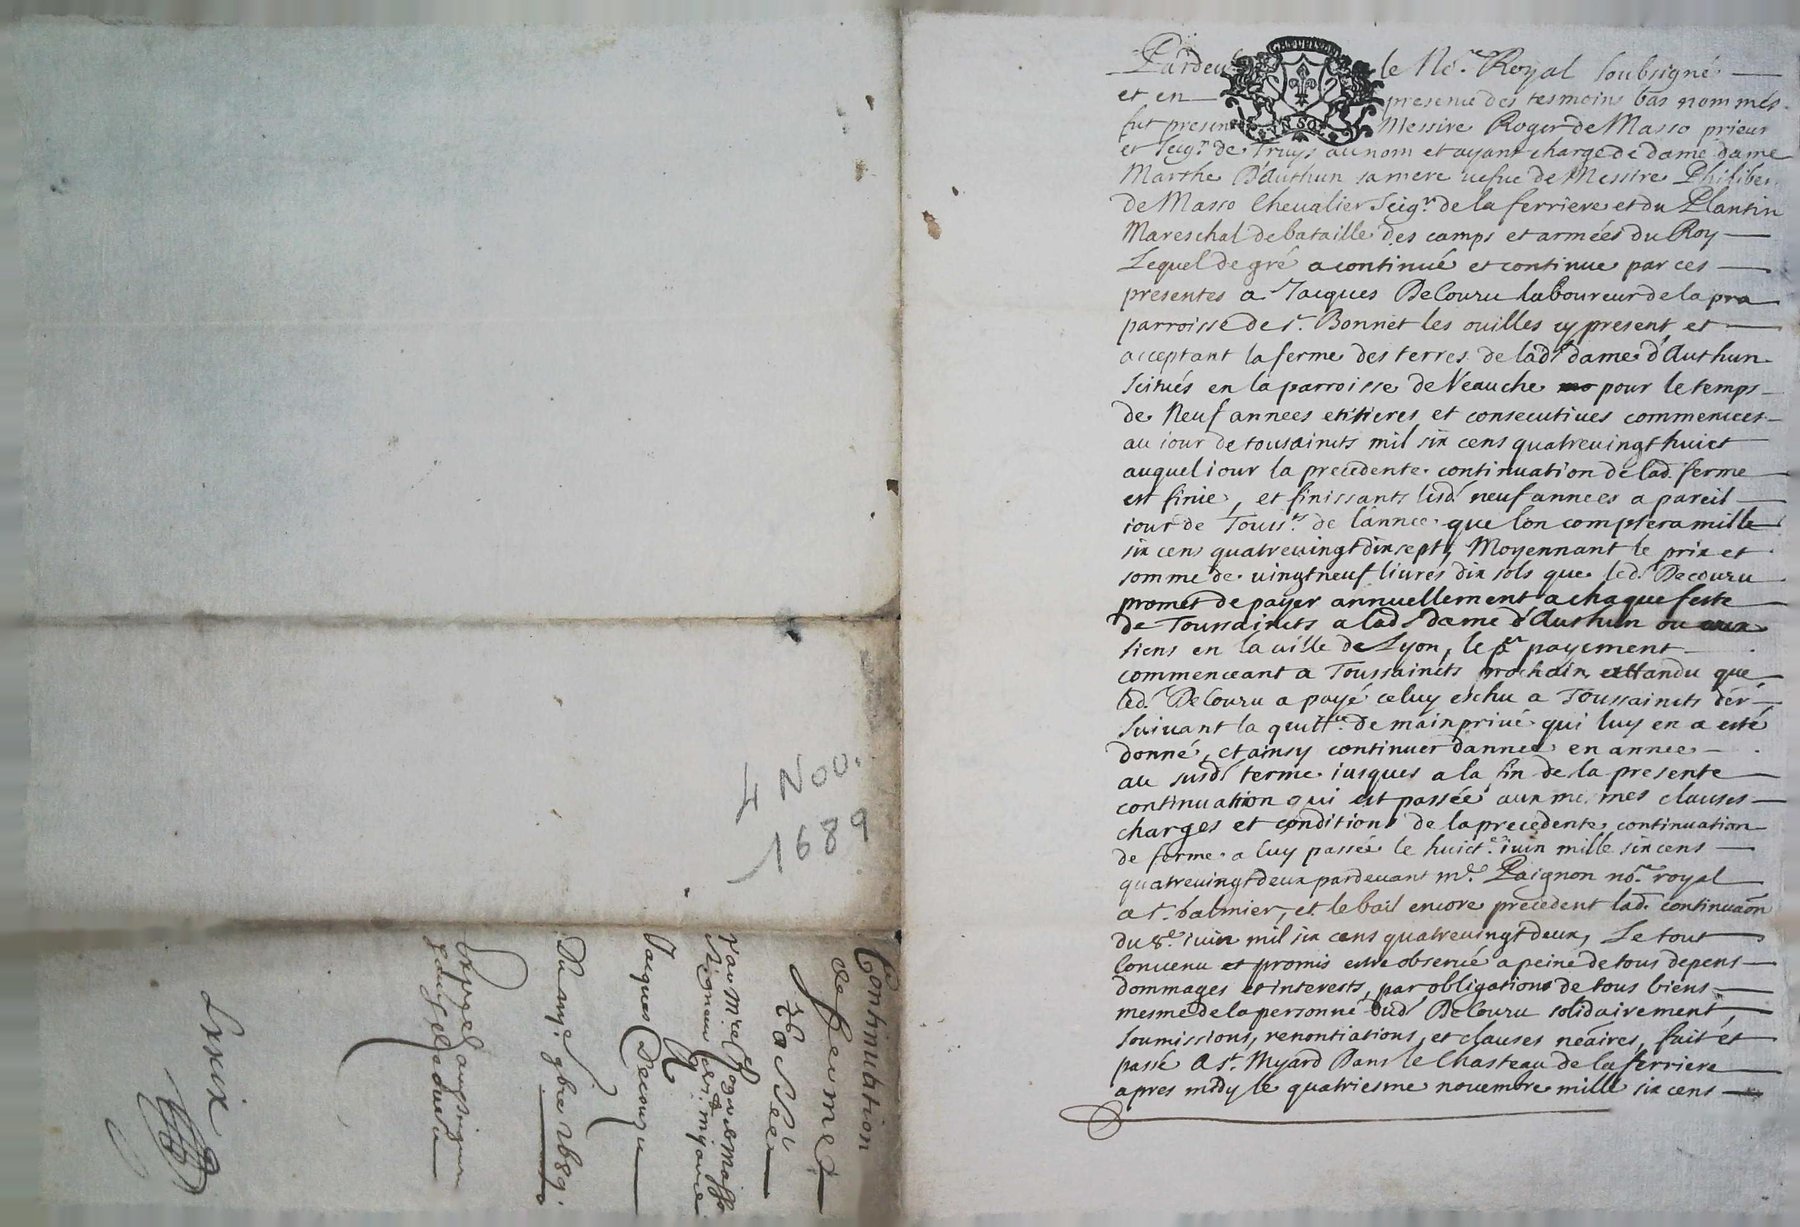 4 Nov.
1689
Continuation
de ferme
Passée
Par Mre Roger de Masso
Seigneur
Jacques Decouzu
Du 4me 9bre 1689.
LXXIX
GNALITE
Pardevant le No.re Royal soubsigné
et en presence des tesmoins bas nommés
fut present Messire Roger de Masso prieur
et seigr. de Truys au nom et ayant charge de dame dame
Marthe D'Authun sa mere vefve de Messire Philiber
de Masso Chevalier Seigr. de la ferriere et du Plantin
Mareschal de bataille des camps et armées du Roy
Lequel de gré a continué et continue par ces
presentes a Jacques DeCouzu laboureur de la pra
parroisse de St. Bonnet les ouilles cy present et
acceptant la ferme des terres de lad. dame d'Authun
Scitués en la parroisse de Veauche pour le temps
de Neuf années entieres et consecutives commencées
au iour de tousaincts mil six cens quatrevingt huict
auquel iour la precedente continuation de lad. ferme
est finie, et finissants lesd. neuf annees a pareil
iour de Touss.ts de l'année que lon comptera mille
six cens quatrevingt dix sept, Moyennant le prix et
somme de vingt neuf livres dix sols que led. Decouzu
promet de payer annuellement a chaque feste
de Toussaincts a lad. dame d'Authun ou aux
siens en la ville de Lyon, le p.er payement
commenceant a Toussaincts prochain attandu que
led. DeCouzu a payé celuy eschu a Toussaincts der
Suivant la quitt.ce de main privé qui luy en a esté
donné, et ainsy continuer d'annee en annee
au susd. terme iusques a la fin de la presente
continuation qui est passée aux mesmes clauses
charges et conditions de la precedente continuation
de ferme a luy passée le huict.e iuin mille six cens
quatrevingt deux pardevant me. Paignon no.re royal
a St. Galmier, et le bail encore precedent lad. continuaon
du 8.e iuin mil six cens quatrevingt deux, Le tout
Convenu et promis estre observé a peine de tous depens
dommages et interests, par obligations de tous biens
mesme de la personne dud. DeCouzu solidairement,
Soumissions, renontiations, et clauses néaires, fait et
passé a St. Myard Dans le Chasteau de la ferriere
apres midy le quatriesme novembre mille six cens